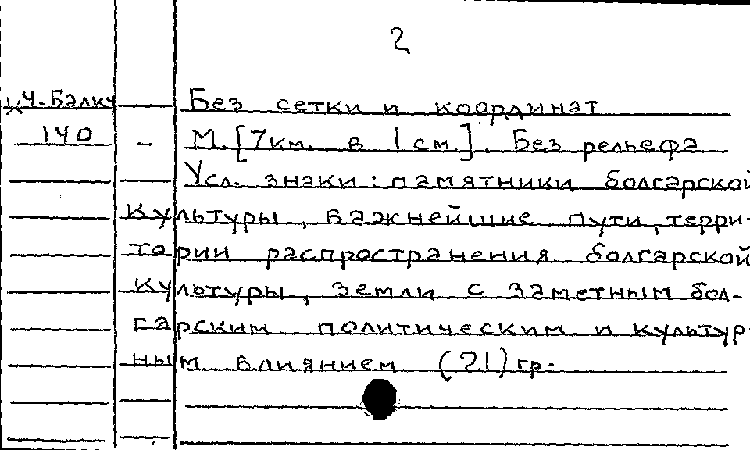 2
Ч-Балк Без сетки и координат
140 - М. [7км. в 1 см.]. Без рельефа
Усл. знаки: памятники болгарской
культуры, важнейшие пути, терри-
тории распространения болгарской
культуры, земли с заметным бол-
гарским политическим и культур-
ным влиянием (21) гр.